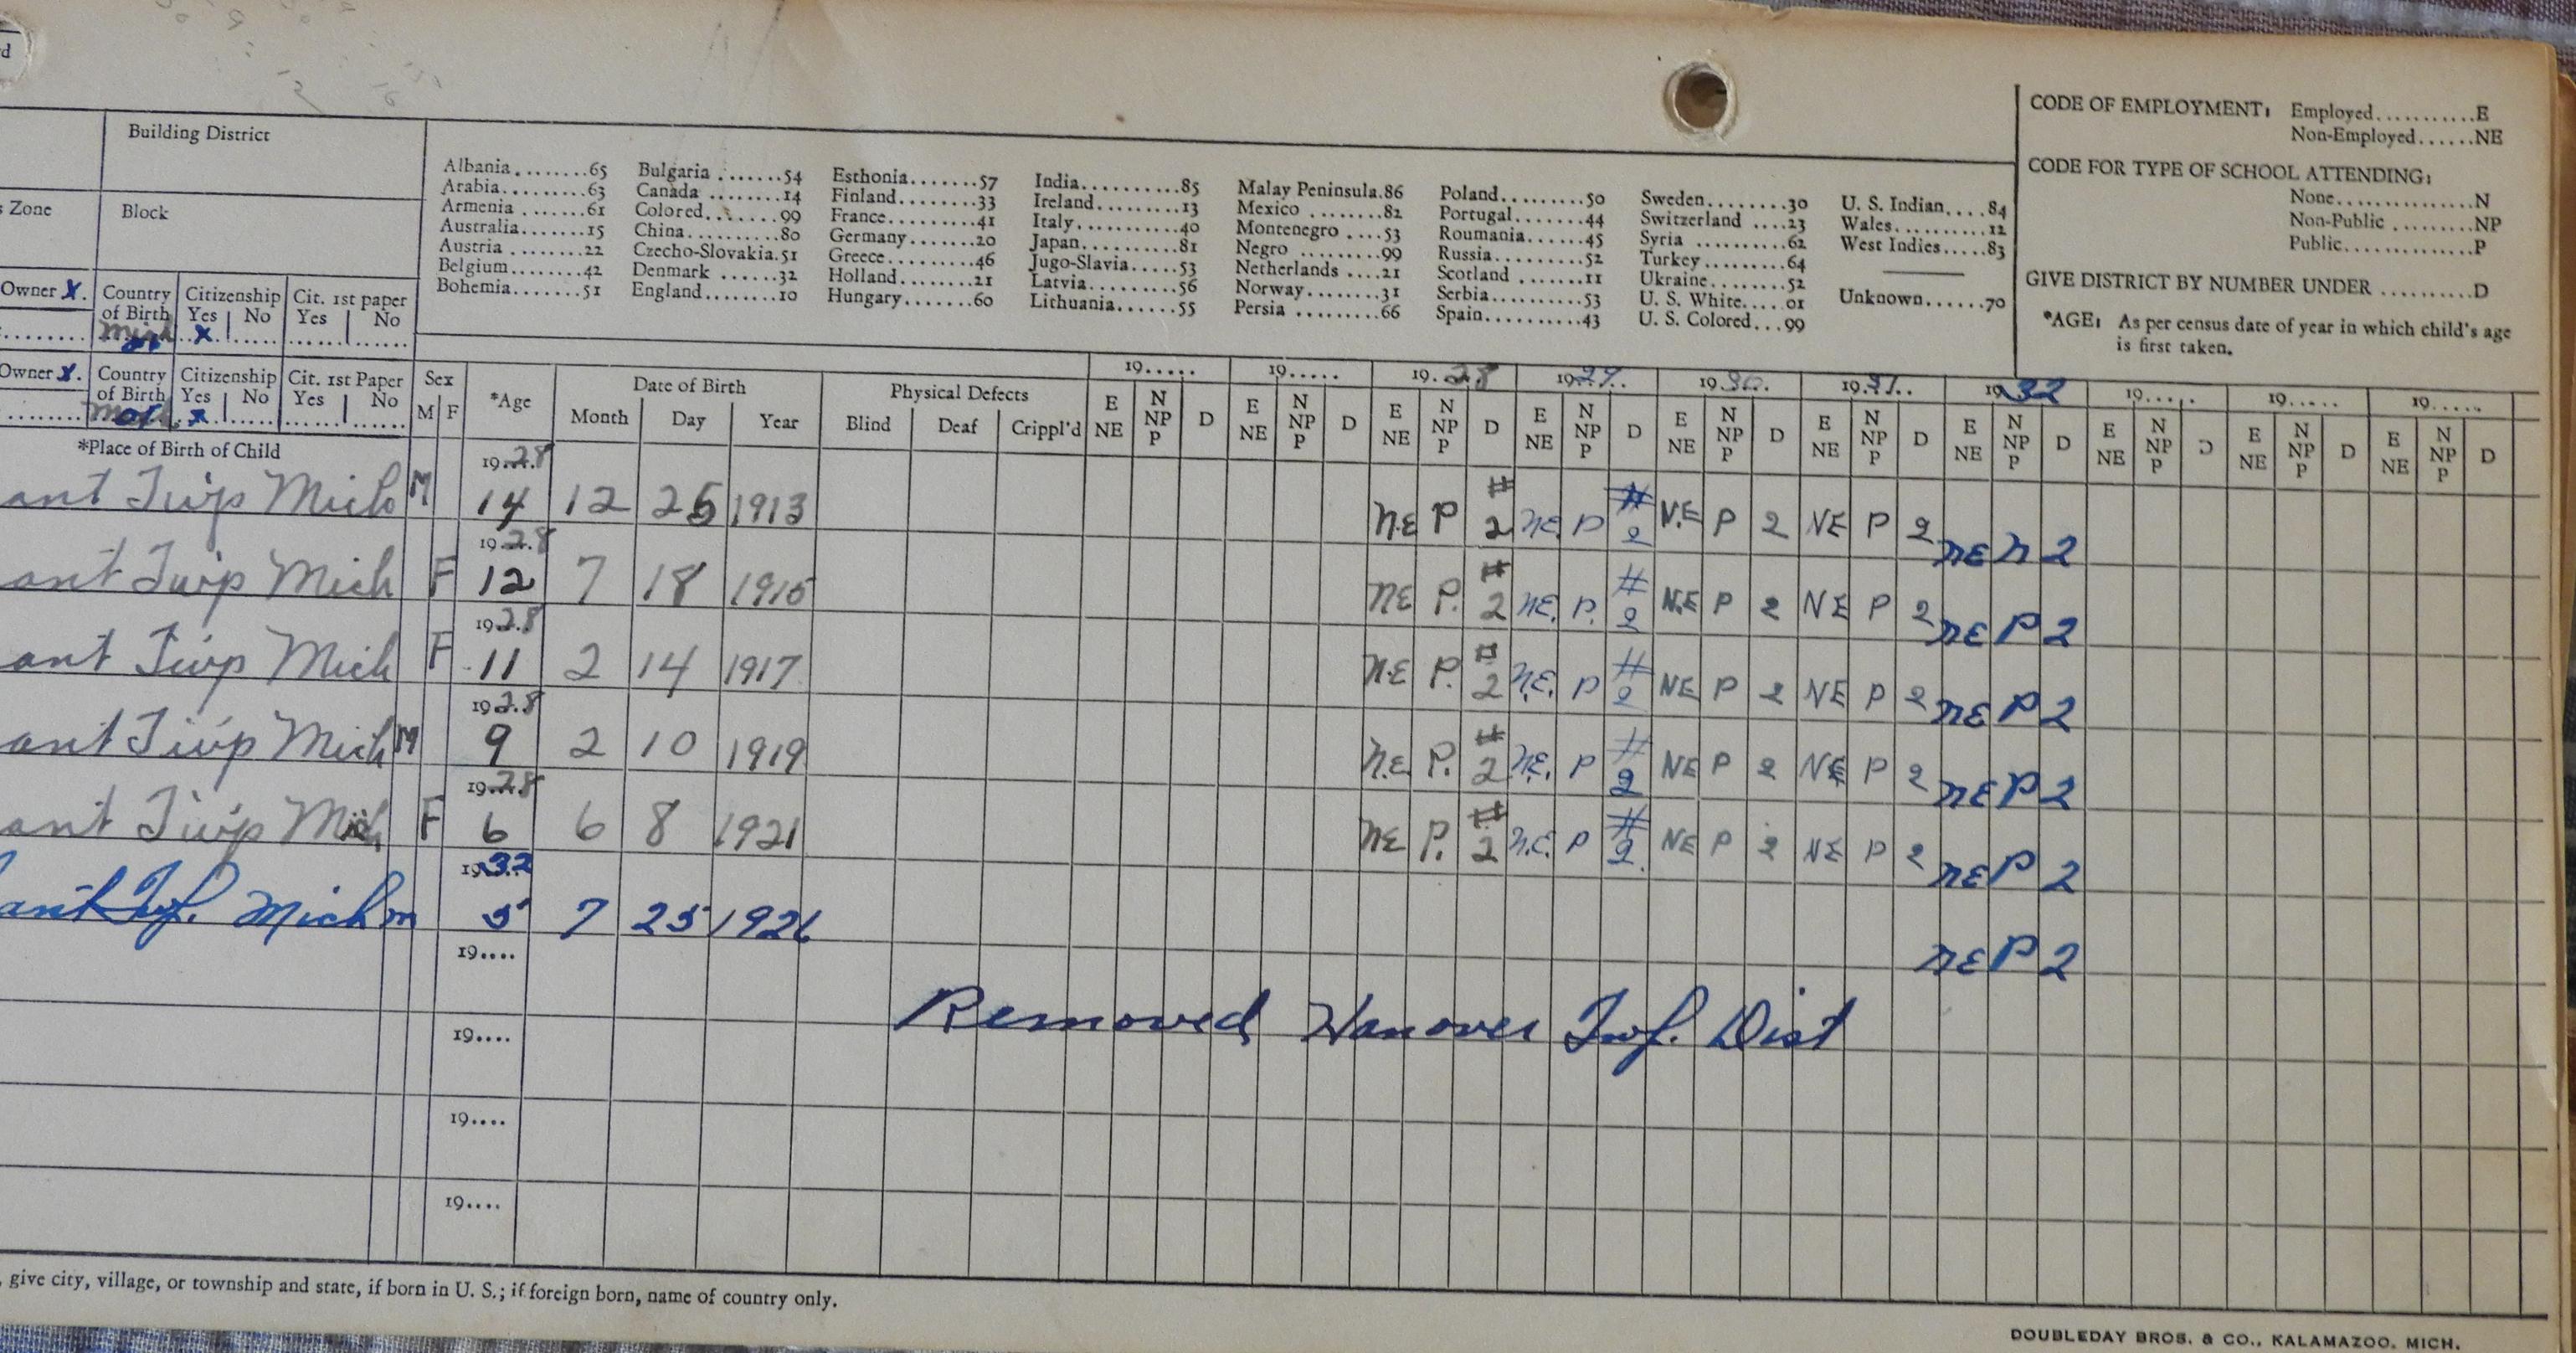 d
Building District
s Zone Block
Albania........65 Bulgaria.......54 Esthonia.......57 India..........85 Malay Peninsula.86 Poland.........50 Sweden........30 U. S. Indian....84
Arabia.........63 Canada ........14 Finland........33 Ireland........13 Mexico ........82 Portugal.......44 Switzerland ....23 Wales..........12
Armenia .......61 Colored........99 France.........41 Italy..........40 Montenegro ....53 Roumania......45 Syria .........62 West Indies.....83
Australia......15 China..........80 Germany.......20 Japan..........81 Negro .........99 Russia.........52 Turkey.........64
Austria .......22 Czecho-Slovakia.51 Greece.........46 Jugo-Slavia.....53 Netherlands ....21 Scotland .......11 Ukraine........52 Unknown......70
Belgium........42 Denmark ......32 Holland........21 Latvia.........56 Norway........31 Serbia.........53 U. S. White.....01
Bohemia.......51 England........10 Hungary.......60 Lithuania......55 Persia .........66 Spain..........43 U. S. Colored...99
CODE OF EMPLOYMENT: Employed...........E
Non-Employed......NE
CODE FOR TYPE OF SCHOOL ATTENDING:
None...............N
Non-Public ........NP
Public..............P
GIVE DISTRICT BY NUMBER UNDER ..........D
*AGE: As per census date of year in which child's age
is first taken.
Owner X. Country of Birth Citizenship Yes No Cit. 1st paper Yes No
Mich x
Owner X. Country of Birth Citizenship Yes No Cit. 1st Paper Yes No
x
*Place of Birth of Child Sex M F *Age Date of Birth Month Day Year Physical Defects Blind Deaf Crippl'd
19..... 19..... 19.28 19 29 19 30 19 31 19 32 19..... 19..... 19.....
E NE N NP P D E NE N NP P D E NE N NP P D E NE N NP P D E NE N NP P D E NE N NP P D E NE N NP P D E NE N NP P D E NE N NP P D E NE N NP P D
19 28
ant Twp Mich M 14 12 25 1913 N.E P # 2 NE. P # 2 N.E P 2 NE P 2 NE N 2
19 28
ant Twp Mich F 12 7 18 1915 NE P. # 2 NE. P. # 2 N.E P 2 NE P 2 NE P 2
19 28
ant Twp Mich F 11 2 14 1917 N.E P. # 2 N.E. P # 2 NE P 2 NE P 2 NE P 2
19 28
ant Twp Mich M 9 2 10 1919 N.E. P. # 2 N.E. P # 2 NE P 2 NE P 2 NE P 2
19 28
ant Twp Mich F 6 6 8 1921 NE P. # 2 N.E. P # 2. NE P 2 NE P 2 NE P 2
19 32
ant Twp. Mich m 5 7 25 1926 NE P 2
19....
Removed Hanover Twp. Dist
19....
19....
19....
, give city, village, or township and state, if born in U. S.; if foreign born, name of country only.
DOUBLEDAY BROS. & CO., KALAMAZOO, MICH.